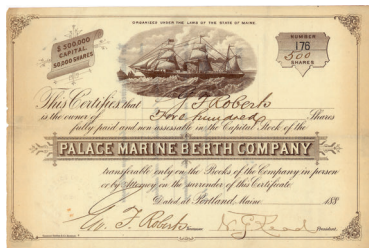 ORGANIZED UNDER THE LAWS OF THE STATE OF MAINE.
$500,000
CAPITAL
50,000 SHARES
NUMBER
176
500
SHARES
This Certifies that F Roberts
is the owner of Five hundred Shares
fully paid and non assessable in the Capital Stock of the
PALACE MARINE BERTH COMPANY
transferable only on the Books of the Company in person
or by Attorney on the surrender of this Certificate
Dated at Portland, Maine 188
F. Roberts
President.